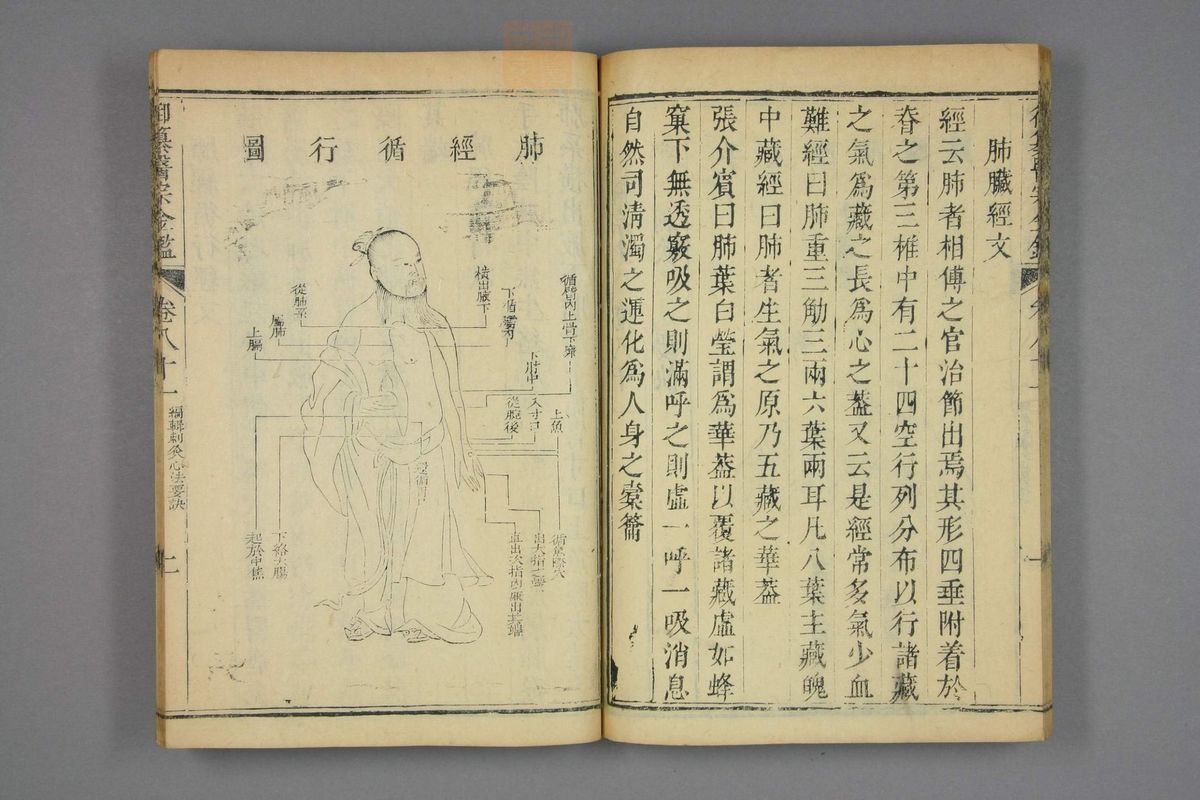 肺臟經文
經云肺者相傅之官治節出焉其形四垂附着於
脊之第三椎中有二十四空行列分布以行諸藏
之氣爲藏之長爲心之葢又云是經常多氣少血
難經曰肺重三觔三兩六葉兩耳凡八葉主藏魄
中藏經曰肺者生氣之原乃五藏之華葢
張介賓曰肺葉白瑩謂爲華葢以覆諸藏虛如蜂
窠下無透竅吸之則滿呼之則虛一呼一吸消息
自然司清濁之運化爲人身之槖籥
肺經循行圖
循臂內上骨下廉
下循臑內
橫出腋下
從肺系
屬肺
上膈
下肘中
上魚
入寸口
從腕後
還循胃口
循魚際穴
出大指之端
直出次指內廉出其端
下絡大腸
起於中焦
御纂醫宗金鑑
卷八十一
編輯刺灸心法要訣